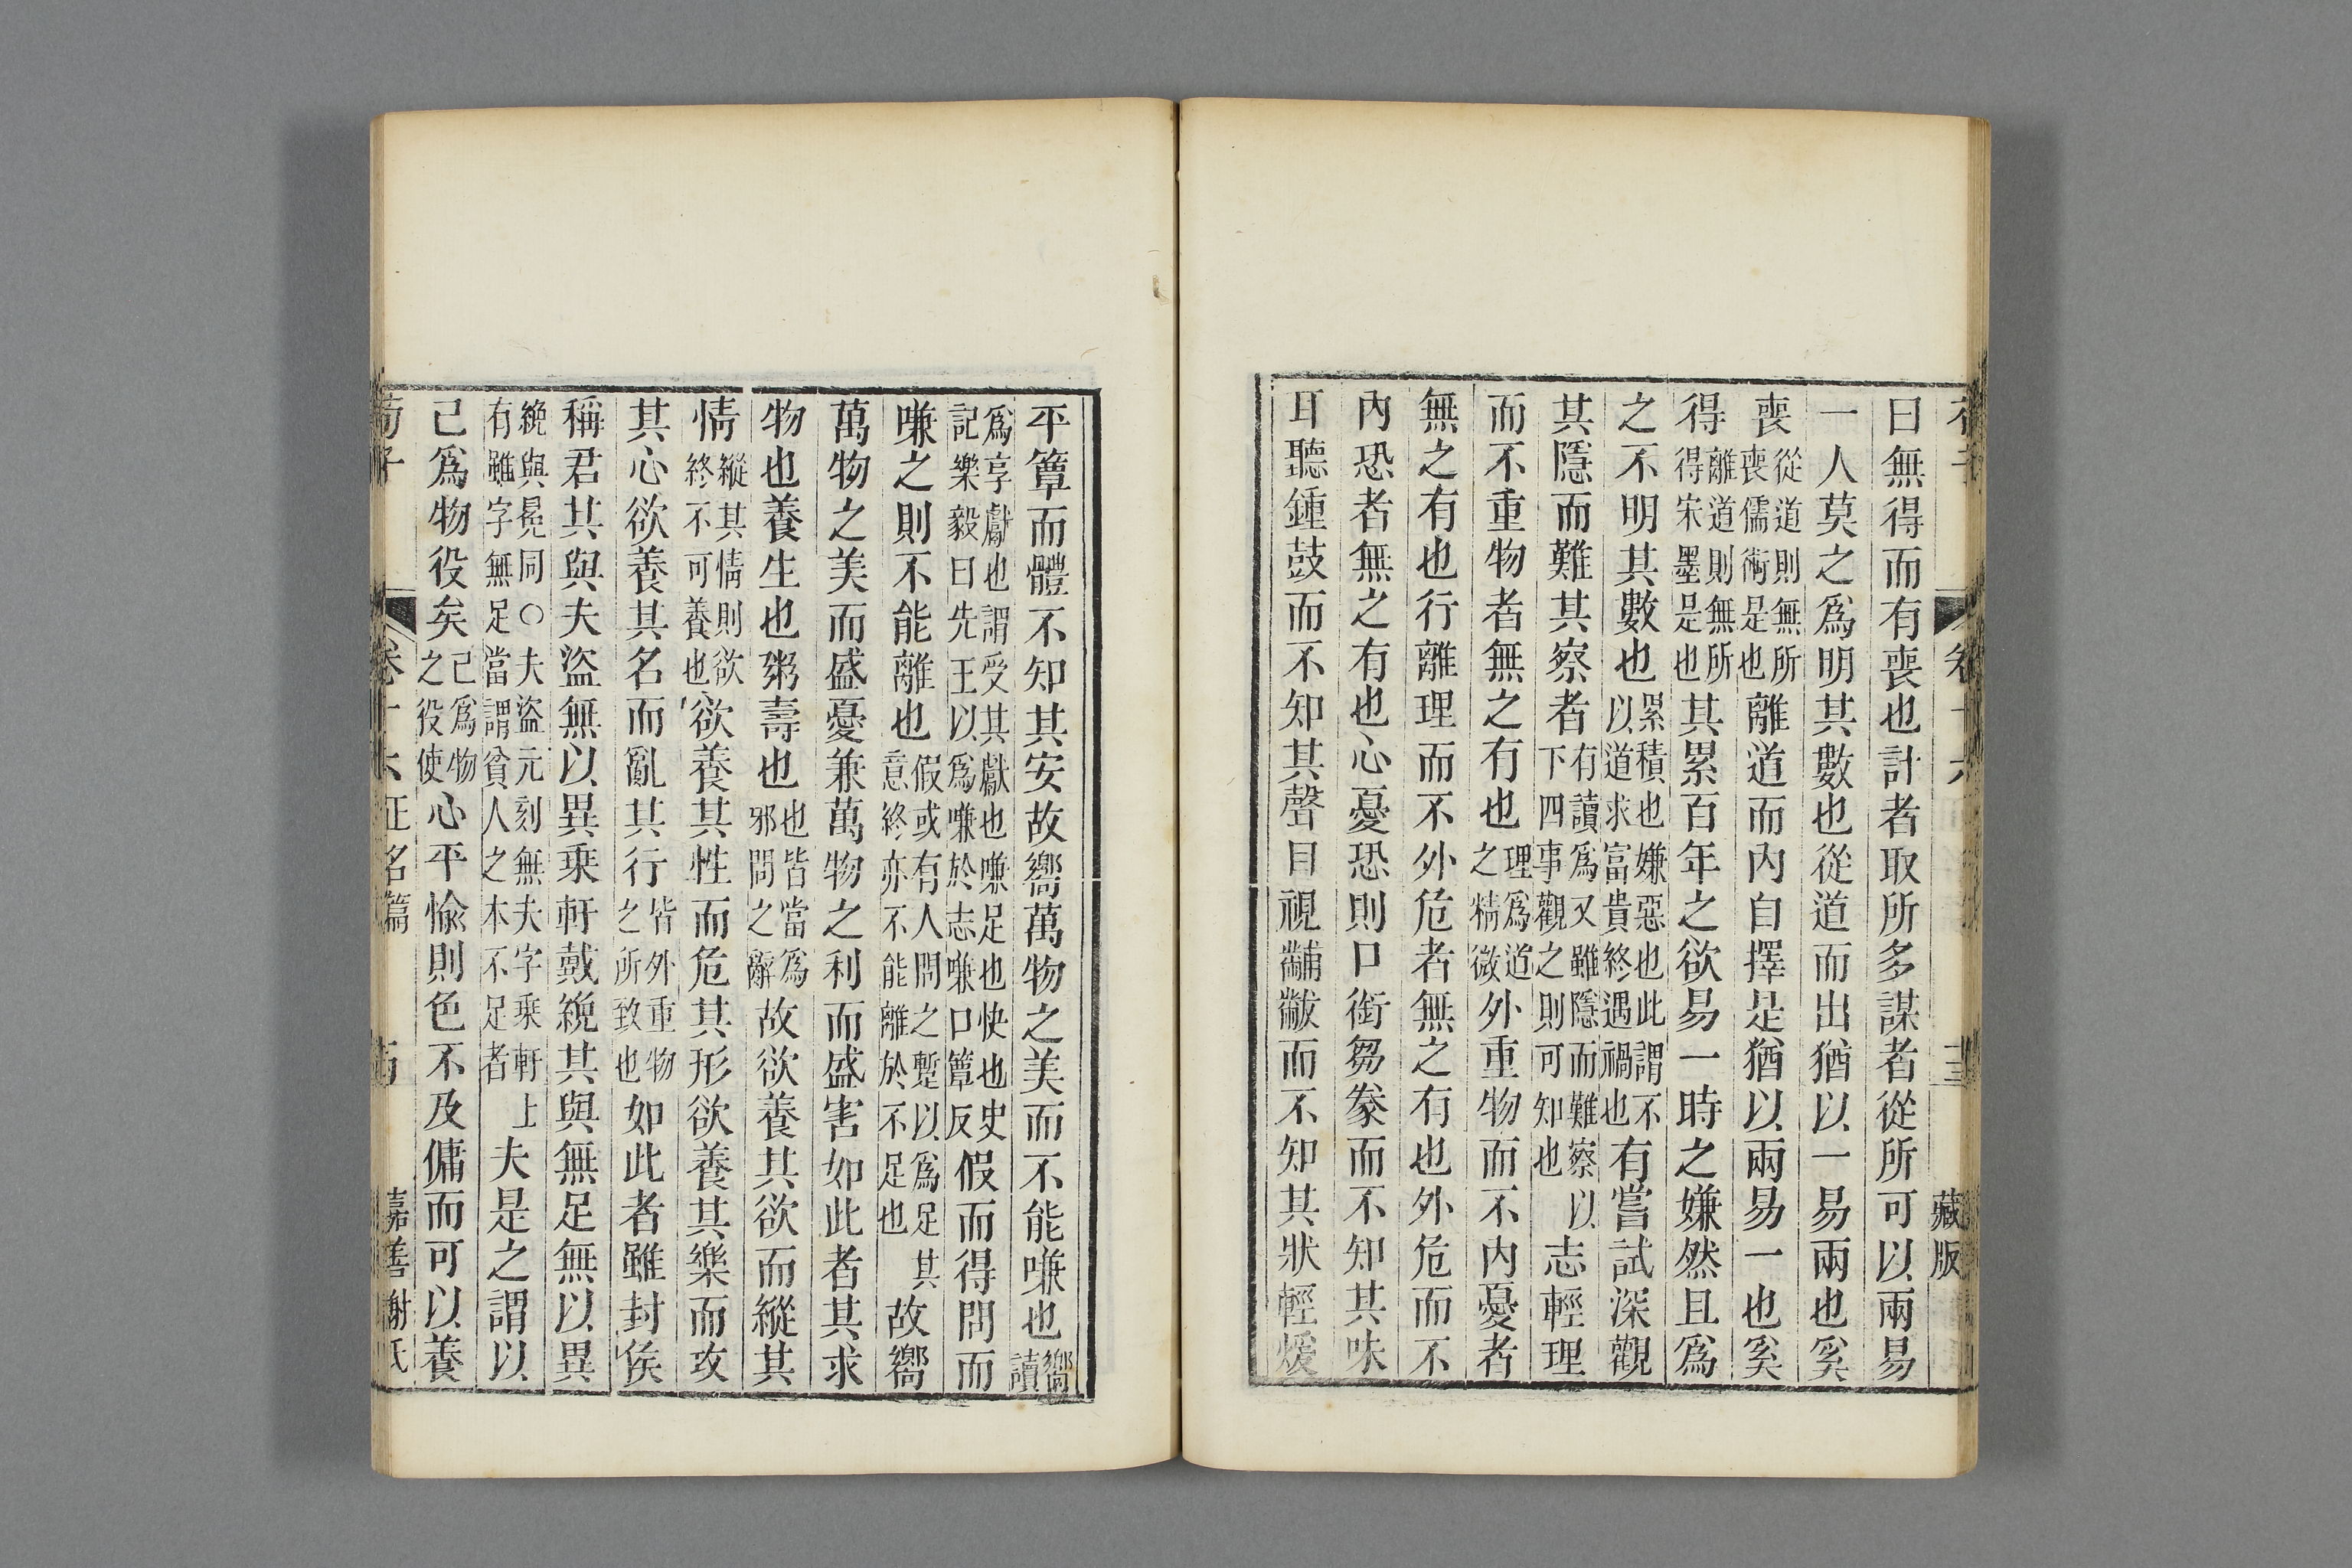 荀子 卷十六 十三 藏版
曰無得而有喪也計者取所多謀者從所可以兩易
一人莫之爲明其數也從道而出猶以一易兩也奚
喪從道則無所喪儒術是也離道而內自擇是猶以兩易一也奚
得離道則無所得宋墨是也其累百年之欲易一時之嫌然且爲
之不明其數也累積也嫌惡也此謂不以道求富貴終遇禍也有嘗試深觀
其隱而難其察者有讀爲又雖隱而難察以下四事觀之則可知也志輕理
而不重物者無之有也理爲道之精微外重物而不內憂者
無之有也行離理而不外危者無之有也外危而不
內恐者無之有也心憂恐則口銜芻豢而不知其味
耳聽鍾鼓而不知其聲目視黼黻而不知其狀輕煖
平簟而體不知其安故嚮萬物之美而不能嗛也嚮讀
爲享獻也謂受其獻也嗛足也快也史記樂毅曰先王以爲嗛於志嗛口簟反假而得問而
嗛之則不能離也假或有人問之蹔以爲足其意終亦不能離於不足也故嚮
萬物之美而盛憂兼萬物之利而盛害如此者其求
物也養生也粥壽也也皆當爲邪問之辭故欲養其欲而縱其
情縱其情則欲終不可養也欲養其性而危其形欲養其樂而攻
其心欲養其名而亂其行皆外重物之所致也如此者雖封侯
稱君其與夫盜無以異乘軒戴絻其與無足無以異
絻與冕同○夫盜元刻無夫字乘軒上有雖字無足當謂貧人之本不足者夫是之謂以
己爲物役矣己爲物之役使心平愉則色不及傭而可以養
荀子 卷十六 正名篇 嘉善謝氏